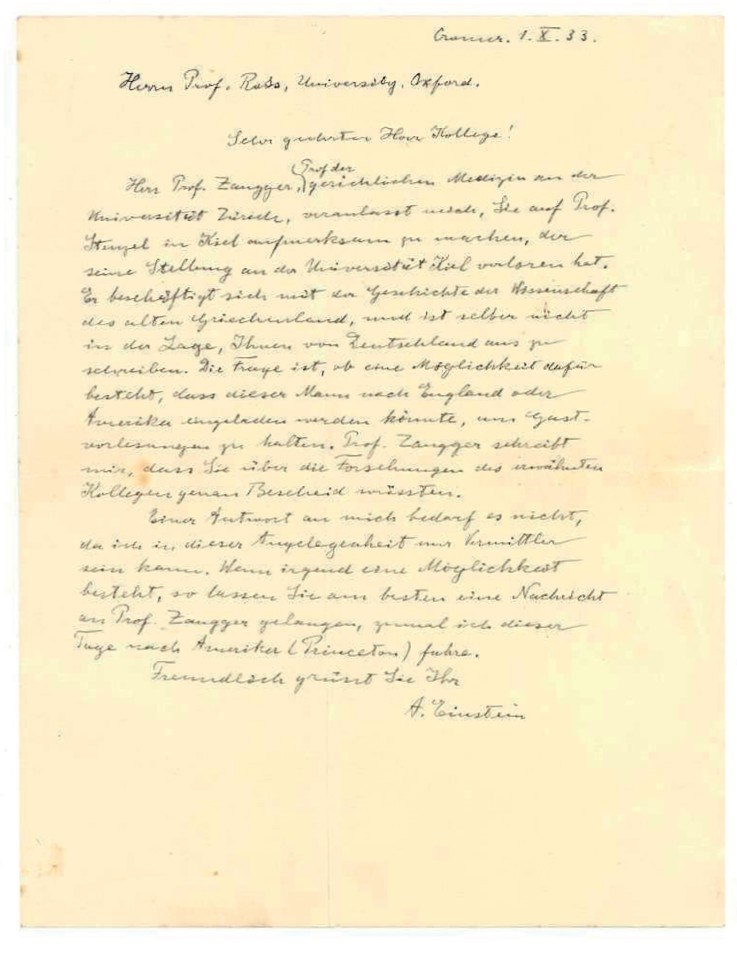 Cromer. 1. X. 33.
Herrn Prof. Ross, University, Oxford.
Sehr geehrter Herr Kollege!
Prof der
Herr Prof. Zangger, gerichlichen Medizin an der
Universität Zürich, veranlasst mich, Sie auf Prof.
Stenzel in Kiel aufmerksam zu machen, der
seine Stellung an der Universität Kiel verloren hat.
Er beschäftigt sich mit der Geschichte der Wissenschaft
des alten Griechenland, und ist selber nicht
in der Lage, Ihnen von Deutschland aus zu
schreiben. Die Frage ist, ob eine Möglichkeit dafür
besteht, dass dieser Mann nach England oder
Amerika eingeladen werden könnte, um Gast-
vorlesungen zu halten. Prof. Zangger schreibt
mir, dass Sie über die Forschungen des erwähnten
Kollegen genau Bescheid wüssten.
Einer Antwort an mich bedarf es nicht,
da ich in dieser Angelegenheit nur Vermittler
sein kann. Wenn irgend eine Möglichkeit
besteht, so lassen Sie am besten eine Nachricht
an Prof. Zangger gelangen, zumal ich dieser
Tage nach Amerika (Princeton) fahre.
Freundlich grüsst Sie Ihr
A. Einstein